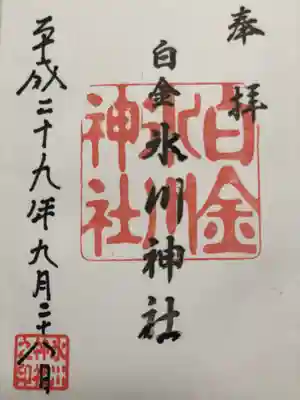 奉拝
白金氷川神社
白金
氷川
神社
平成二十九年九月二十八日